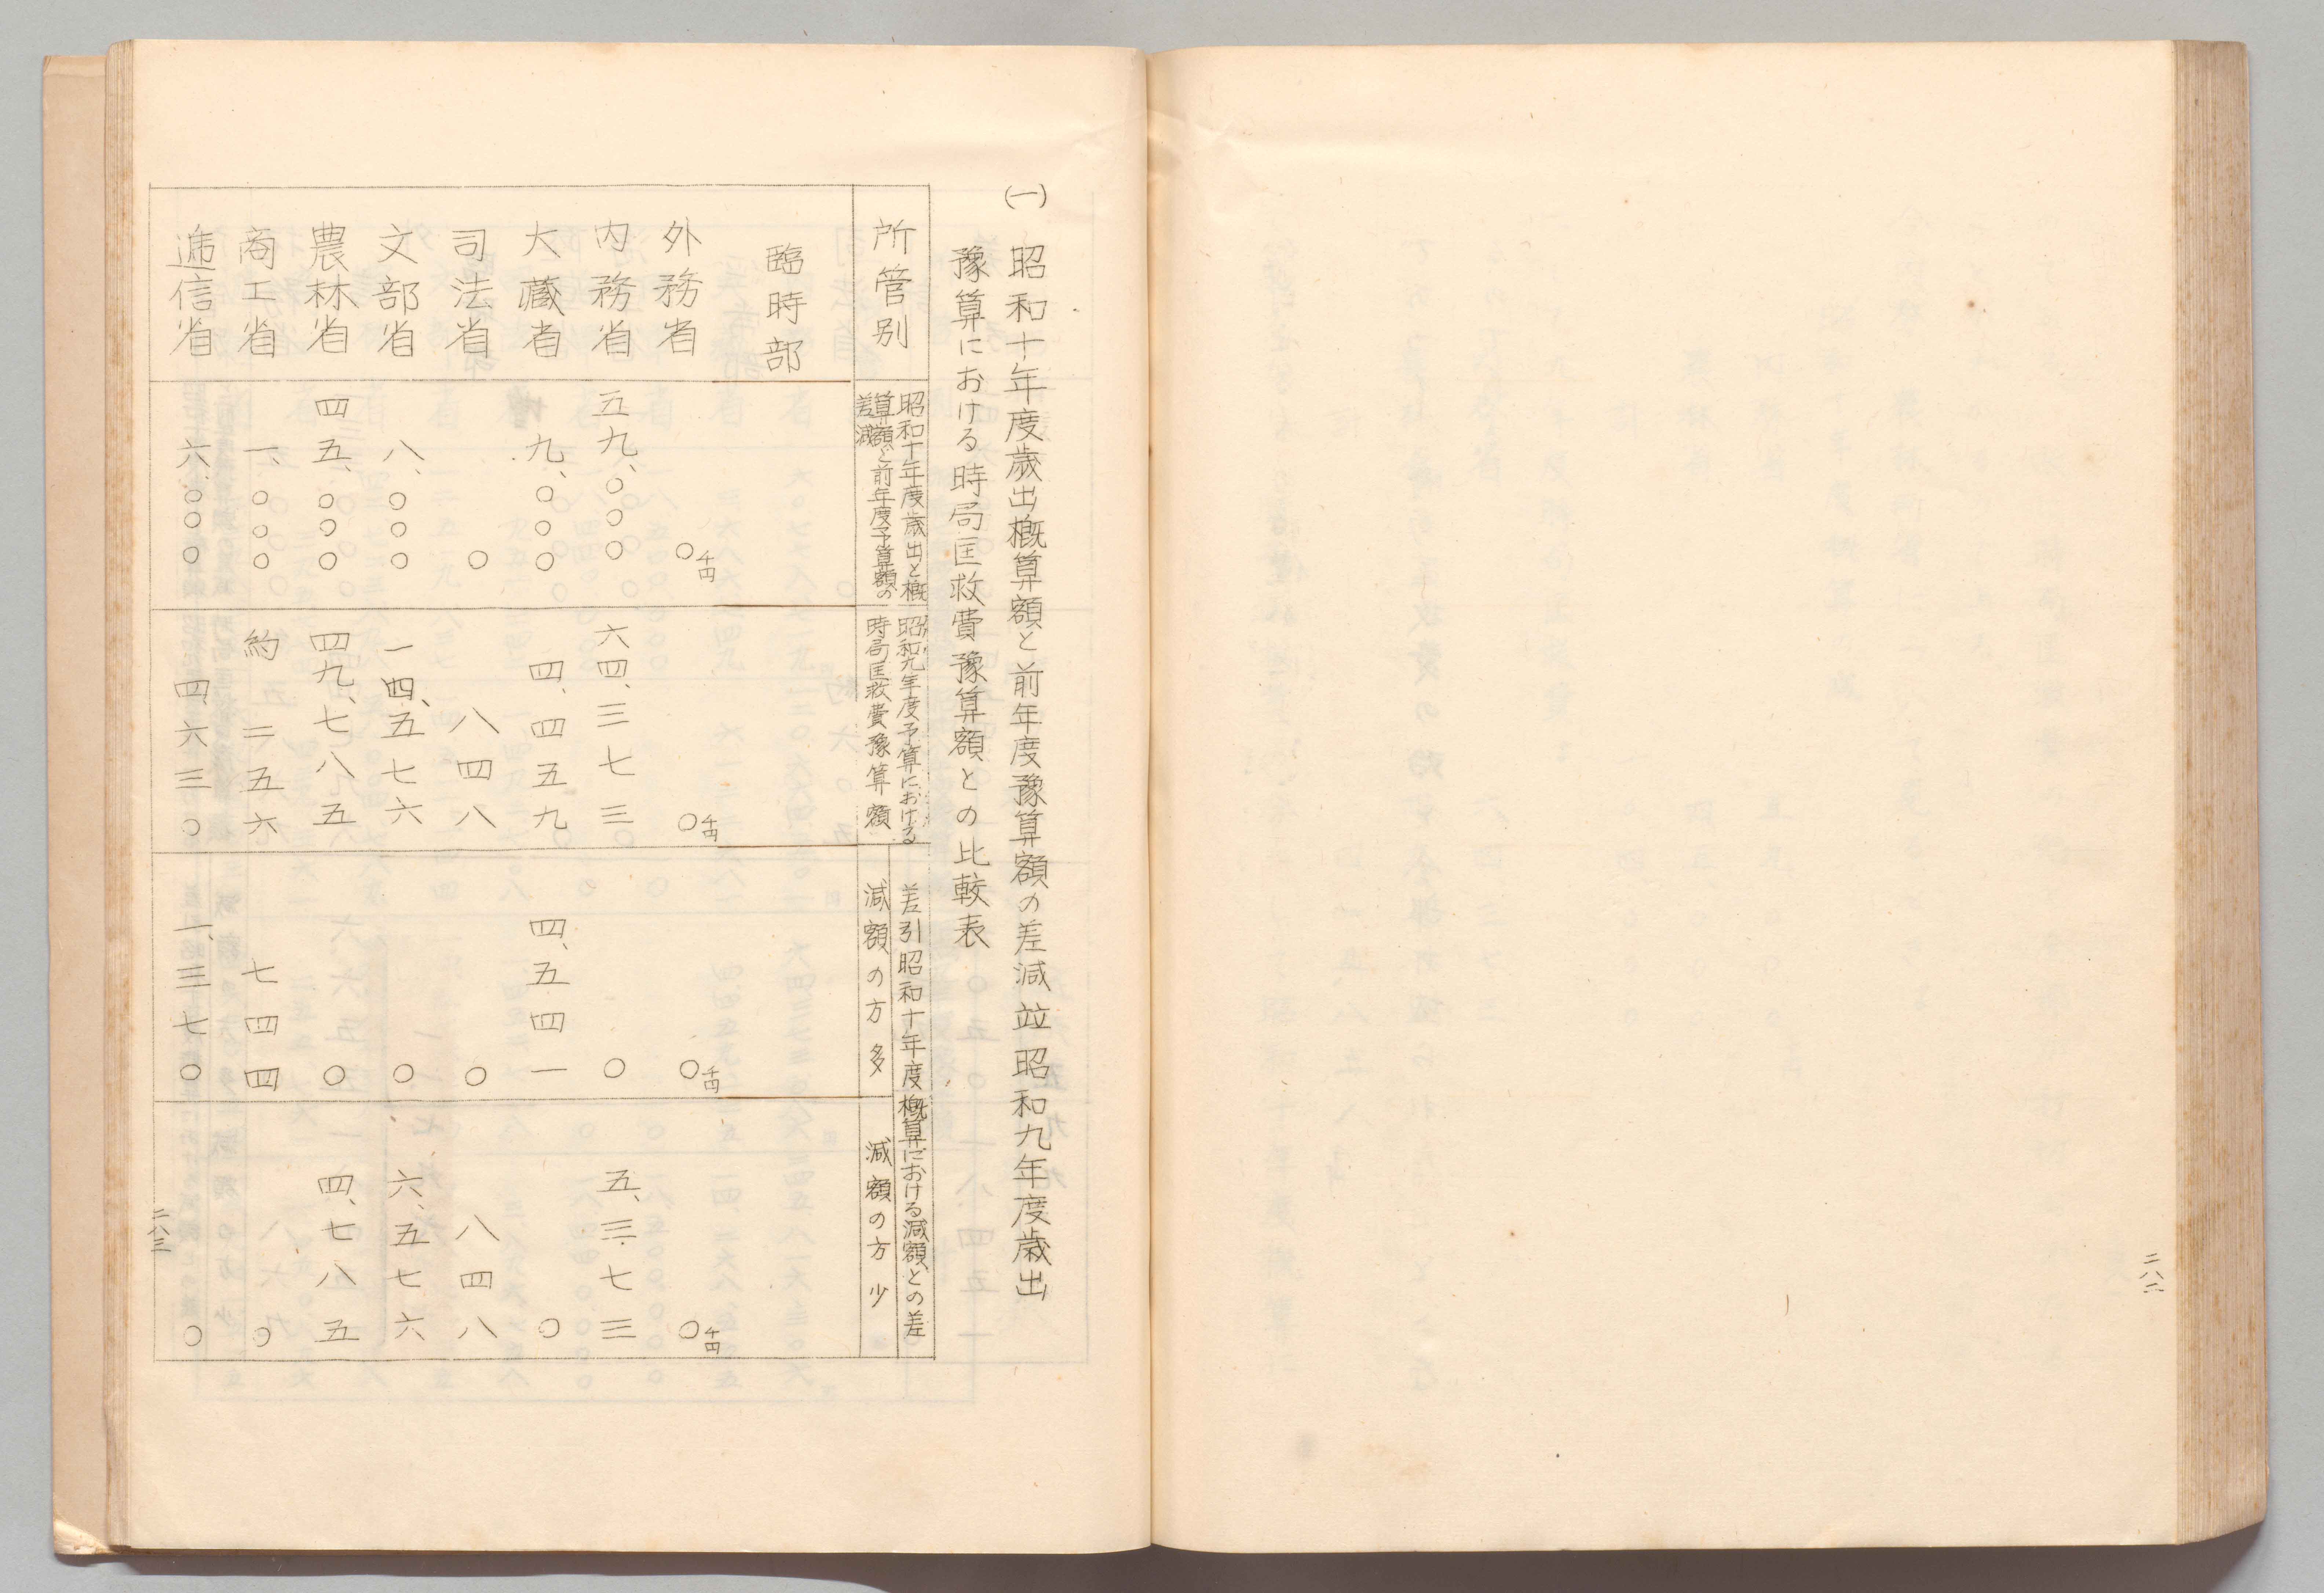 二八二
(一)　昭和十年度歳出概算額と前年度豫算額の差減竝昭和九年度歳出
豫算における時局匡救費豫算額との比較表
所管別
昭和十年度歳出と概
算額と前年度予算額の
差減
昭和九年度予算における
時局匡救費豫算額
差引昭和十年度概算における減額との差
減額の方多
減額の方少
臨時部
外務省　〇千円　〇千円　〇千円　〇千円
内務省　五九、〇〇〇　六四、三七三　〇　五、三七三
大蔵省　九、〇〇〇　四、四五九　四、五四一　〇
司法省　〇　八四八　〇　八四八
文部省　八、〇〇〇　一四、五七六　〇　六、五七六
農林省　四五、〇〇〇　四九、七八五　〇　四、七八五
商工省　一、〇〇〇　約二五六　七四四　〇
遞信省　六、〇〇〇　四、六三〇　一、三七〇　〇
二八三